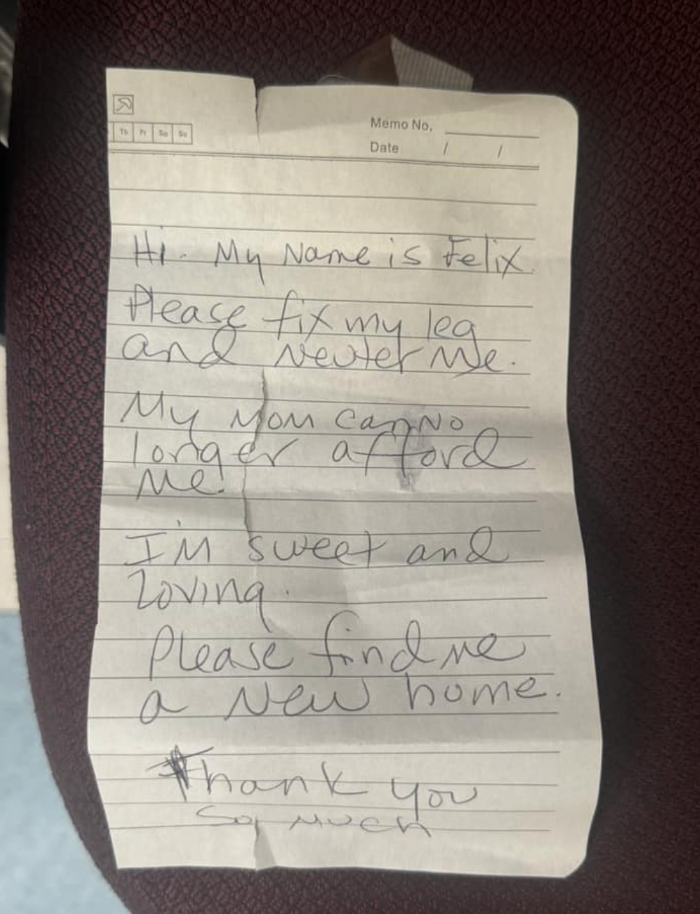 Th Fr Sa Su
Memo No.
Date / /
Hi. My Name is Felix.
Please fix my leg
and Neuter Me.
My Mom can No
longer afford
Me.
I'M sweet and
loving.
Please find me
a New home.
Thank you
So Much